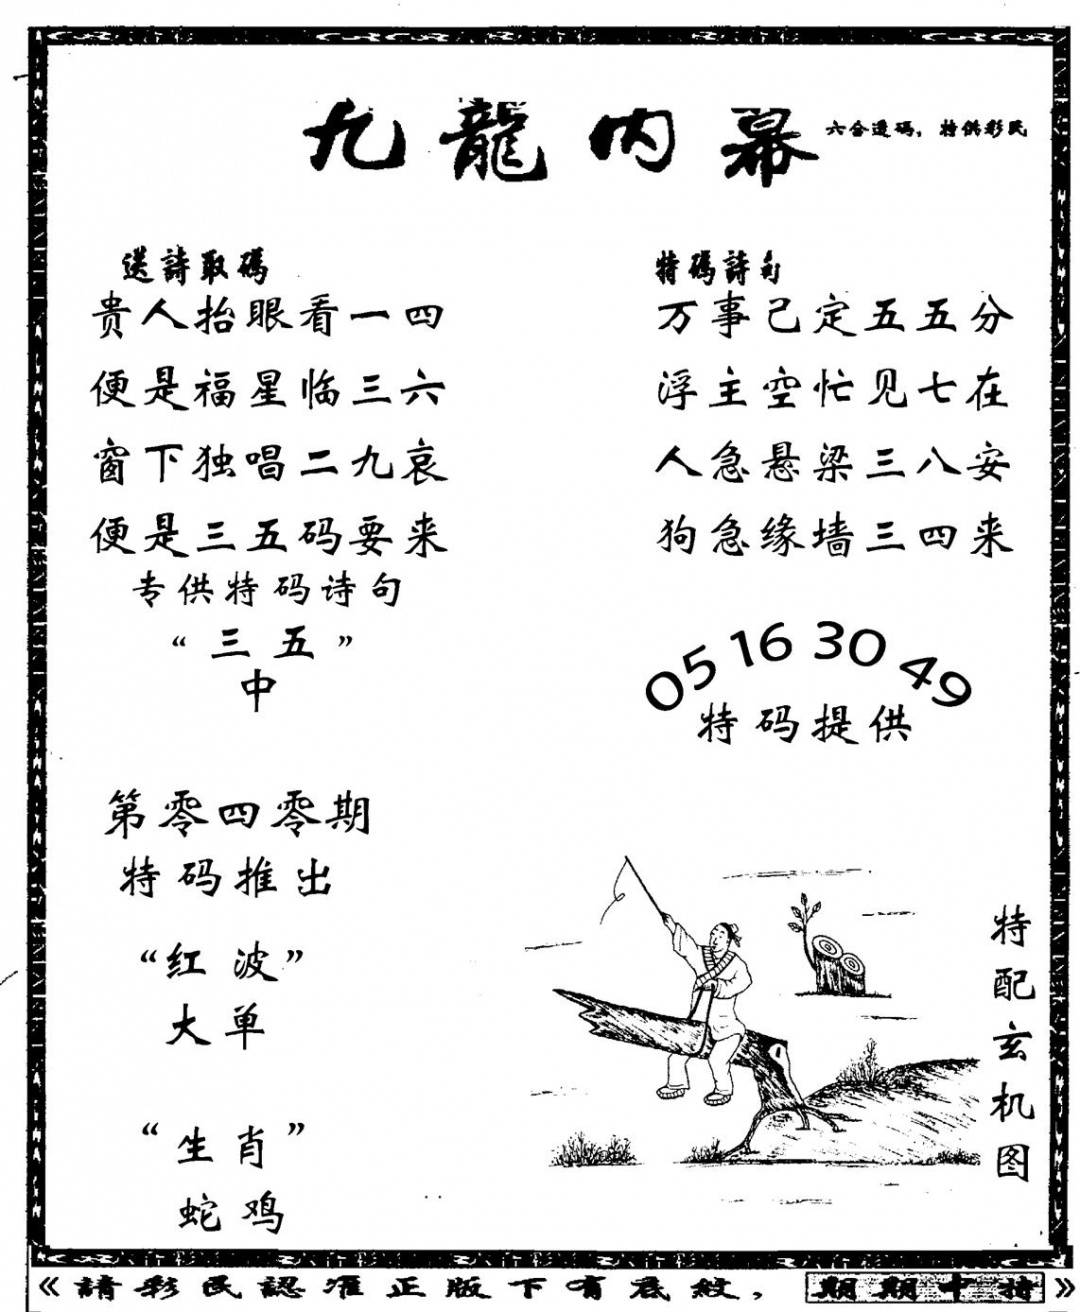 九龍内幕
六合透碼，特供彩民
送詩取碼
贵人抬眼看一四
便是福星临三六
窗下独唱二九哀
便是三五码要来
专供特码诗句
“三五”
中
特碼詩句
万事已定五五分
浮主空忙见七在
人急悬梁三八安
狗急缘墙三四来
05 16 30 49
特码提供
第零四零期
特码推出
“红波”
大单
“生肖”
蛇鸡
特配玄机图
《請彩民認准正版下有底紋，期期中特》